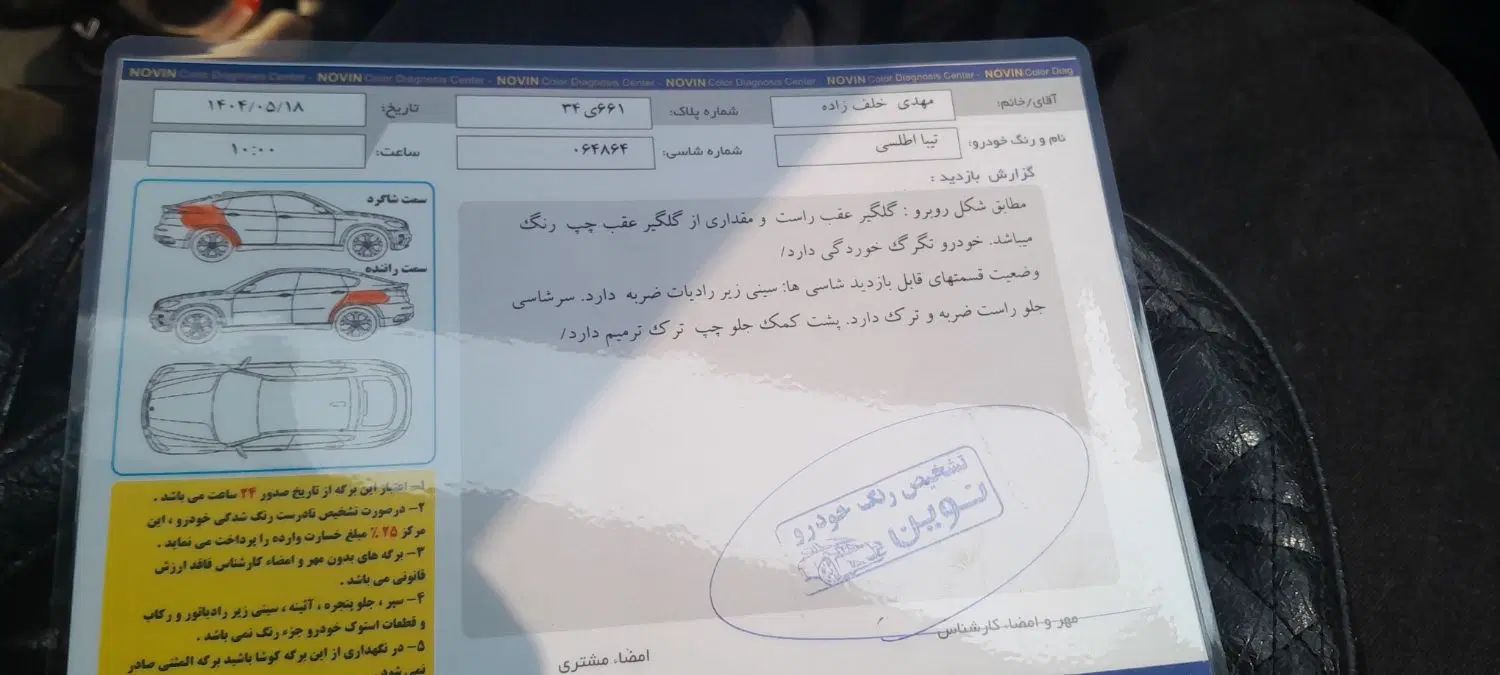 NOVIN Color Diagnosis Center - NOVIN Color Diagnosis Center - NOVIN Color Diagnosis Center - NOVIN Color Diagnosis Center - NOVIN Color Diagnosis Center - NOVIN Color Diag
آقای/خانم: مهدی خلف زاده شماره پلاک: ۶۶۱ی ۳۴ تاریخ: ۱۴۰۴/۰۵/۱۸
نام و رنگ خودرو: تیبا اطلسی شماره شاسی: ۰۶۴۸۶۴ ساعت: ۱۰:۰۰
گزارش بازدید :
مطابق شکل روبرو : گلگیر عقب راست و مقداری از گلگیر عقب چپ رنگ
میباشد. خودرو تگرگ خوردگی دارد/
وضعیت قسمتهای قابل بازدید شاسی ها: سینی زیر رادیات ضربه دارد. سرشاسی
جلو راست ضربه و ترک دارد. پشت کمک جلو چپ ترک ترمیم دارد/
سمت شاگرد
سمت راننده
۱- اعتبار این برگه از تاریخ صدور ۲۴ ساعت می باشد .
۲- درصورت تشخیص نادرست رنگ شدگی خودرو ، این
مرکز ۲۵ ٪ مبلغ خسارت وارده را پرداخت می نماید .
۳- برگه های بدون مهر و امضاء کارشناس فاقد ارزش
قانونی می باشد .
۴- سپر ، جلو پنجره ، آئینه ، سینی زیر رادیاتور و رکاب
و قطعات استوک خودرو جزء رنگ نمی باشد .
۵- در نگهداری از این برگه کوشا باشید برگه المثنی صادر
نمی شود.
تشخیص رنگ خودرو
نوین
مهر و امضاء کارشناس
امضاء مشتری